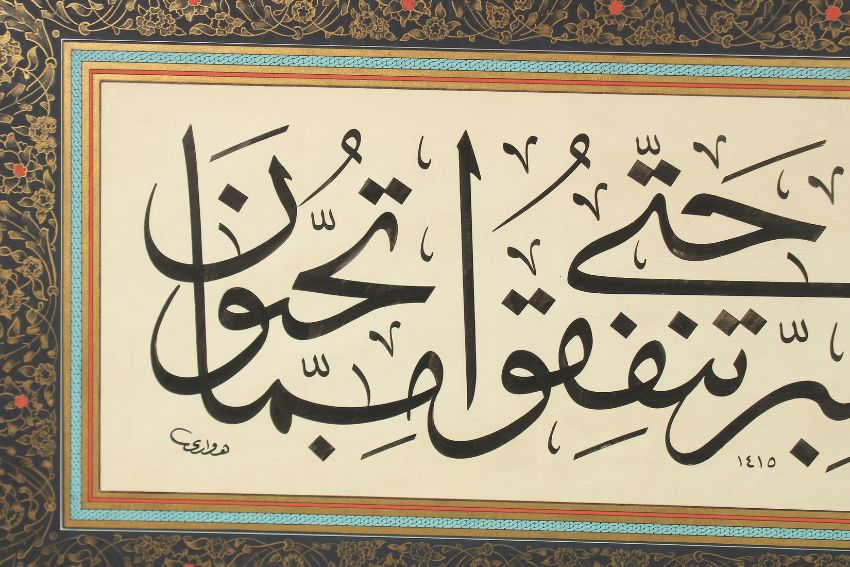 ـبرّ حتّى تنفقوا ممّا تحبّون
١٤١٥
هواري